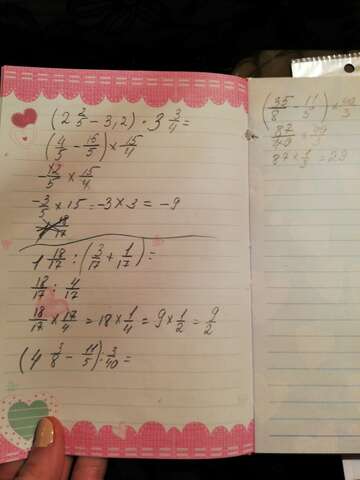 (2 2/5 - 3,2) · 3 3/4 =
(4/5 - 16/5) × 15/4
-12/5 × 15/4
-3/5 × 15 = -3 × 3 = -9
1 18/17 : (3/17 + 1/17) =
18/17 : 4/17
18/17 × 17/4 = 18 × 1/4 = 9 × 1/2 = 9/2
(4 3/8 - 11/5) · 3/40 =
(35/8 - 11/5) × 40/3
87/40 × 40/3
87 × 1/3 = 29